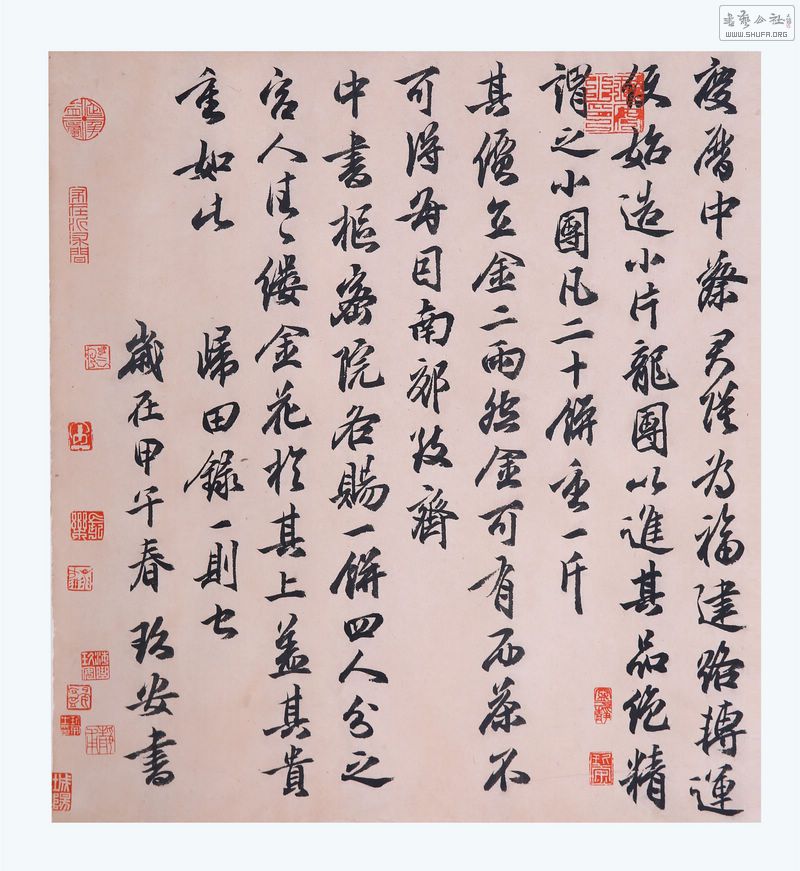 慶曆中蔡君謨為福建路轉運
使始造小片龍團以進其品絶精
謂之小團凡二十餅重一斤
其價直金二兩然金可有而茶不
可得每因南郊致齋
中書樞密院各賜一餅四人分之
宮人往〻縷金花於其上蓋其貴
重如此
歸田錄一則也
歲在甲午春 玖安書
書藝公社
WWW.SHUFA.ORG